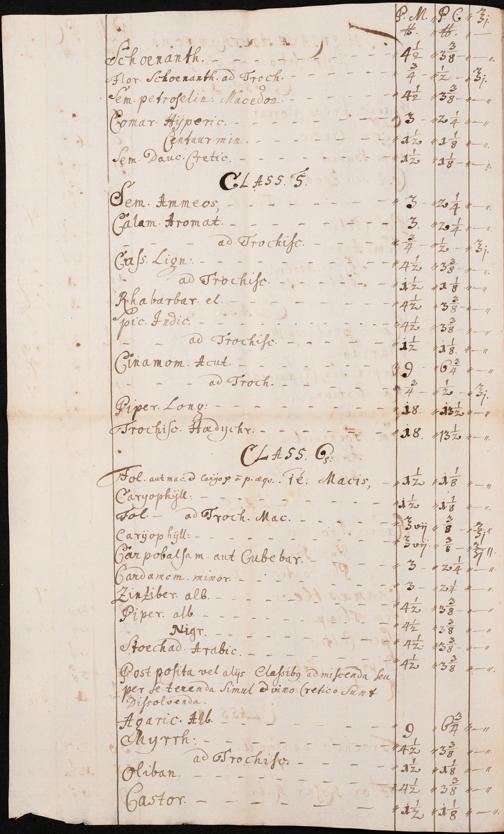 P. M. P. C. ʒj.
℔. ℔.
Schoenanth. 4½ 3⅜
Flor. Schoenanth. ad Troch. ¾ ½ ʒj.
Sem. petroselin: Macedon. 4½ 3⅜
Comar. Hyperic. 3 2¼
Centaur. min. 1½ 1⅛
Sem. Dauc. Cretic. 1½ 1⅛
CLASS. 5.
Sem. Ammeos, 3 2¼
Calam. Aromat. 3. 2¼
ad Trochisc. ¾ ½ ʒj.
Cass. Lign. 4½ 3⅜
ad Trochisc. 1½ 1⅛
Rhabarbar. el. 4½ 3⅜
Spic. Indic. 4½ 3⅜
ad Trochisc. 1½ 1⅛
Cinamom. Acut. 9 6¾
ad Troch. ¾ ½ ʒj.
Piper. Long: 18. 13½
Trochisc. Hædychr. 18. 13½
CLASS. 6.
Fol. aut mac. d p. æqs. It. Macis, 1½ 1⅛
Caryophyll: 1½ 1⅛
Fol ad Troch. Mac. ʒvij ⅜
Caryophyll: ʒvij ⅜
Carpobalsam. aut Cubebar. 3 2¼
Cardamom. minor. 3 2¼
Zinziber. alb. 4½ 3⅜
Piper. alb. 4½ 3⅜
Nigr. 4½ 3⅜
Stoechad. Arabic. 4½ 3⅜
Post posita vel alijs Classibq admiscenda seu
per se terenda simul è vino Cretico sunt
Dissolvenda.
Agaric. Alb. 9 6¾
Myrrh: 4½ 3⅜
ad Trochisc. 1½ 1⅛
Oliban. 4½ 3⅜
Castor. 1½ 1⅛